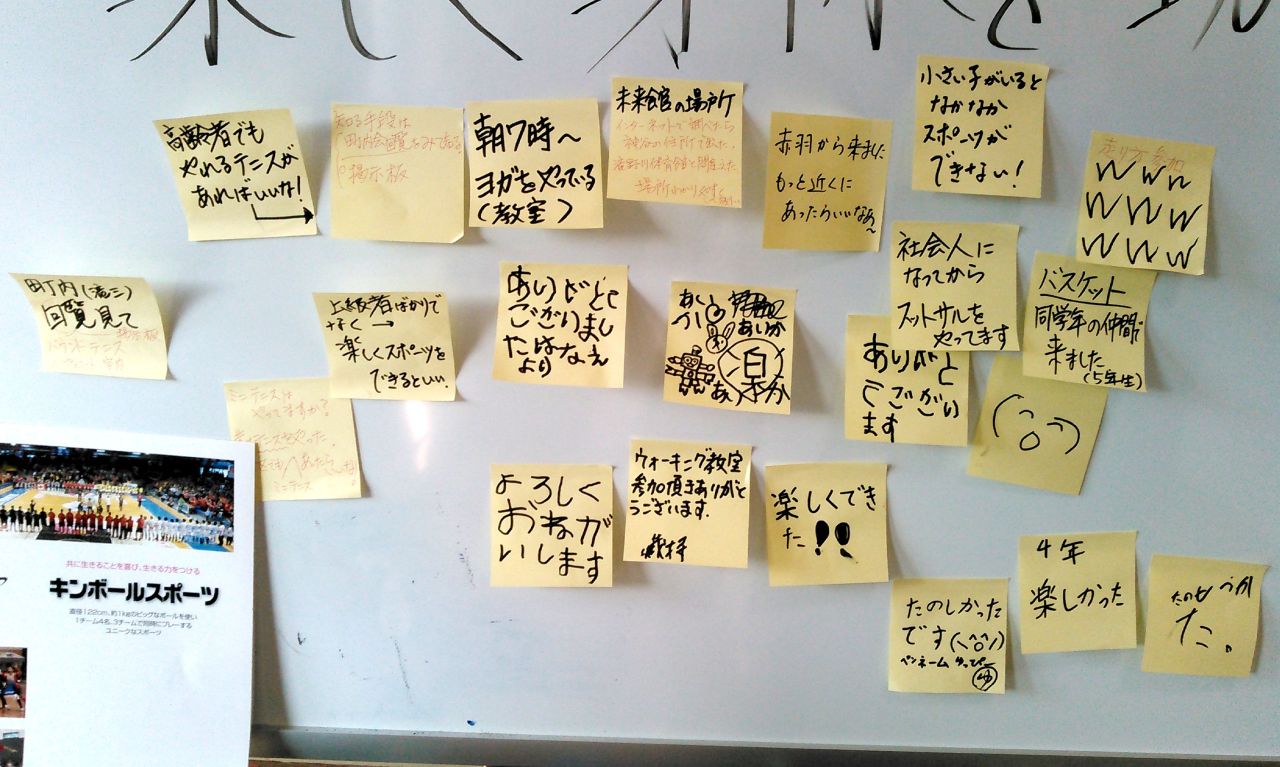 楽しく身体を動
高齢者でも
やれるテニスが
あればいいな!
知る手段は
町内会回覧
掲示板
朝7時~
ヨガをやっている
(教室)
未来館の場所
インターネットで調べたら
神谷の住所で出た。
滝野川体育館と間違えた
赤羽から来ました
もっと近くに
あったらいいなあ~
小さい子がいると
なかなか
スポーツが
できない!
走り方参加
W W W
W W W
W W W
町内(滝三)
回覧見て
掲示板
バウンドテニス
上級者ばかりで
なく→
楽しくスポーツを
できるといい。
ありがとう
ございまし
たはなえ
より
あいか
社会人に
なってから
フットサルを
やってます
バスケット
同学年の仲間で
来ました
(5年生)
ありがと
うござい
ます
ミニテニスは
やってますか?
ミニテニス
よろしく
おねが
いします
ウォーキング教室
参加頂きありがと
うございます。
楽しくでき
た!!
たのしかった
です(^o^)
ペンネーム ゆっぴー
ゆ
4年
楽しかった
た。
共に生きることを喜び、生きる力をつける
キンボールスポーツ
直径122cm、約1kgのビッグなボールを使い
1チーム4名、3チームで同時にプレーする
ユニークなスポーツ